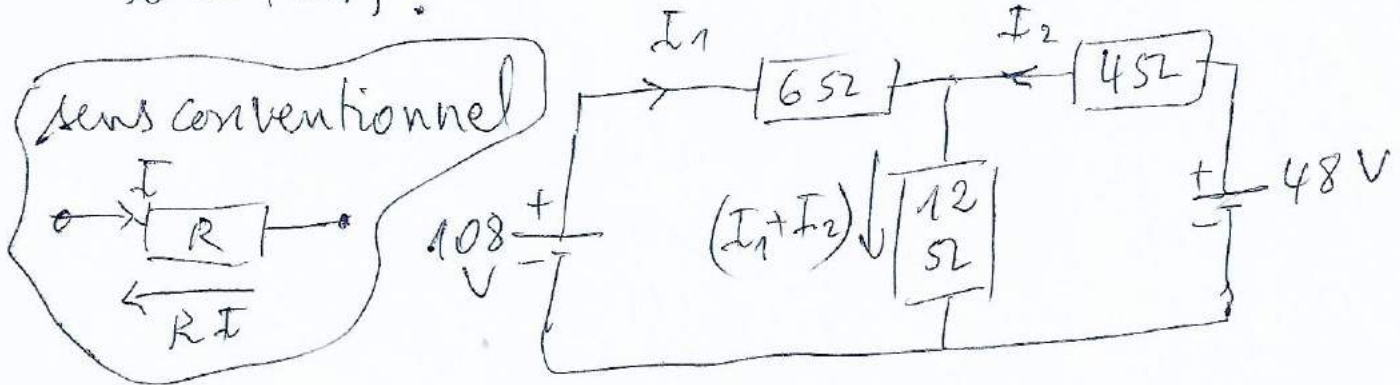 I1
I2
sens conventionnel
I
R
RI
6Ω
4Ω
+
108
-
V
(I1+I2)
12
Ω
+
-
48 V